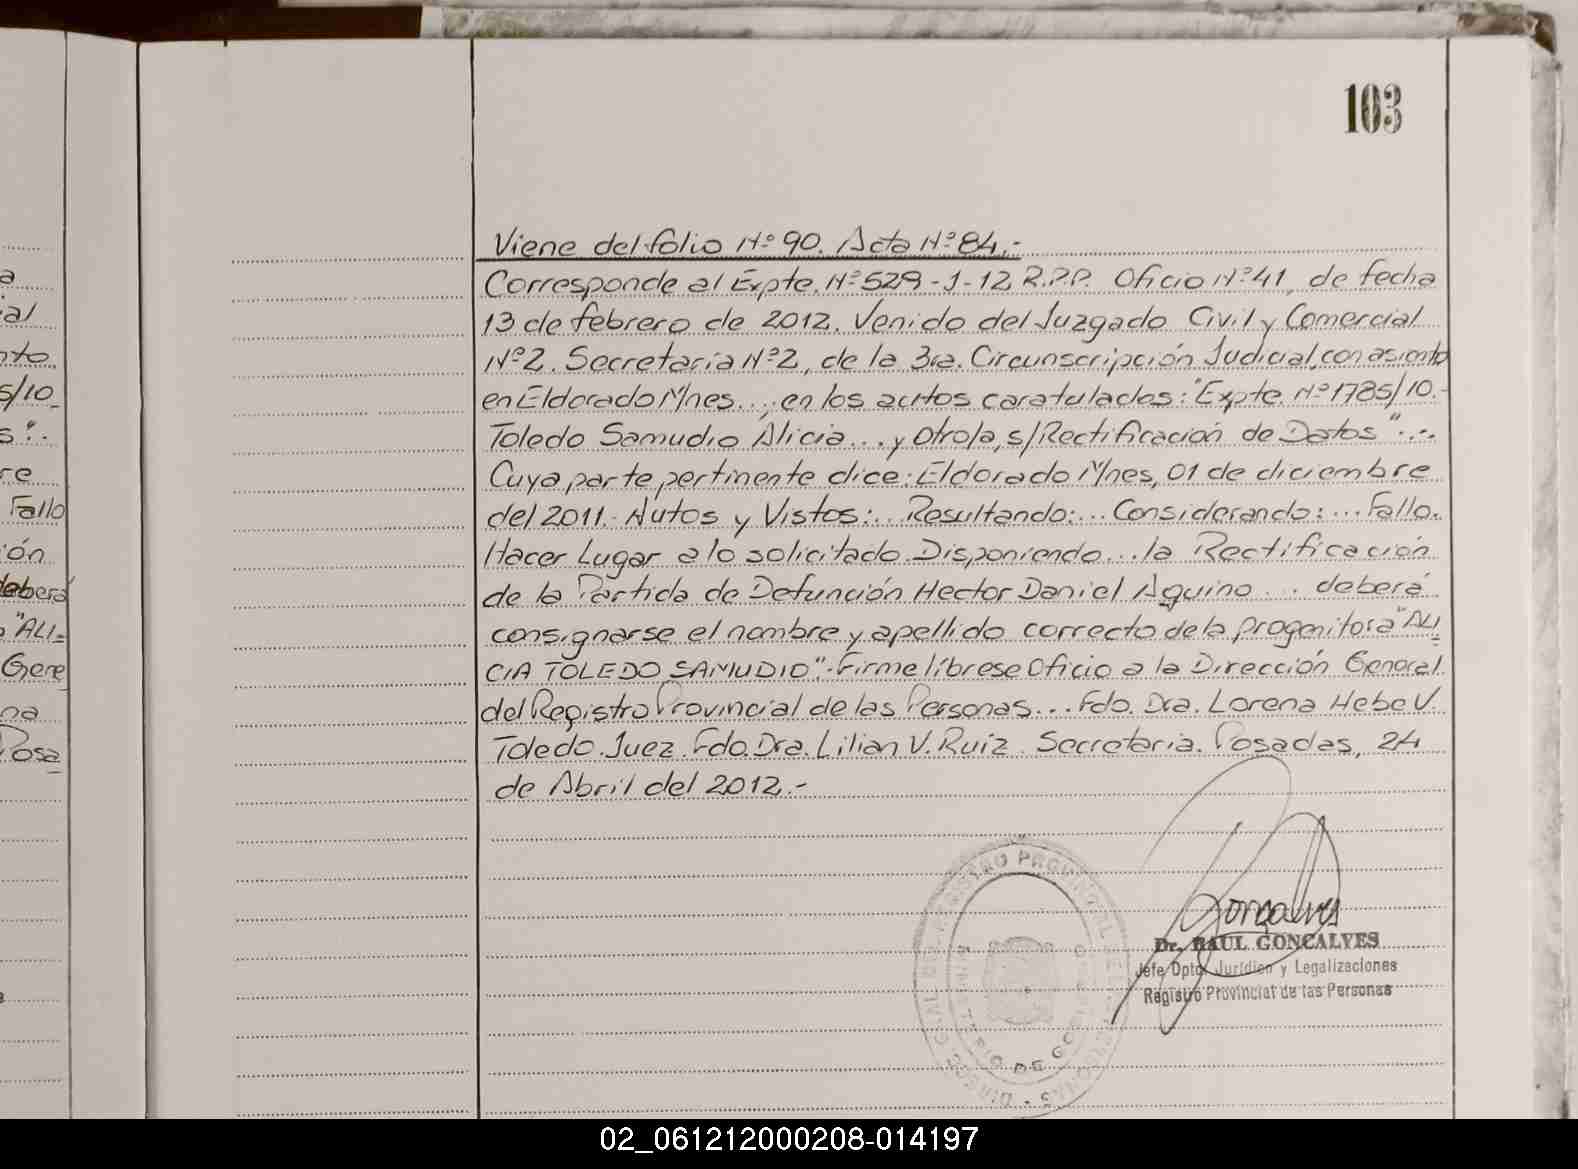 103
a
ial
nto
5/10.
s".
re
Fallo
ión
deberá
"ALI=
Gene
na
Posa
Viene del folio Nº 90. Acta Nº 84.-
Corresponde al Expte. Nº 529-J-12 R.P.P. Oficio Nº 41, de fecha
13 de febrero de 2012. Venido del Juzgado Civil y Comercial
Nº 2. Secretaría Nº 2, de la 3ra. Circunscripción Judicial, con asiento
en Eldorado Mnes..., en los autos caratulados: "Expte. Nº 1785/10.-
Toledo Samudio Alicia... y Otro/a, s/Rectificación de Datos"...
Cuya parte pertinente dice: Eldorado Mnes, 01 de diciembre
del 2011.- Autos y Vistos:... Resultando:... Considerando:... Fallo.
Hacer Lugar a lo solicitado. Disponiendo... la Rectificación
de la Partida de Defunción Hector Daniel Aquino... deberá
consignarse el nombre y apellido correcto de la progenitora "ALI=
CIA TOLEDO SAMUDIO".- Firme líbrese Oficio a la Dirección General
del Registro Provincial de las Personas... Fdo. Dra. Lorena Hebe V.
Toledo. Juez. Fdo. Dra. Lilian V. Ruiz. Secretaria. Posadas, 24
de Abril del 2012.-
Goncalves
Dr. RAUL GONCALVES
Jefe Dpto. Jurídico y Legalizaciones
Registro Provincial de las Personas
REGISTRO PROVINCIAL DE LAS PERSONAS
MINISTERIO DE GOBIERNO
02_061212000208-014197